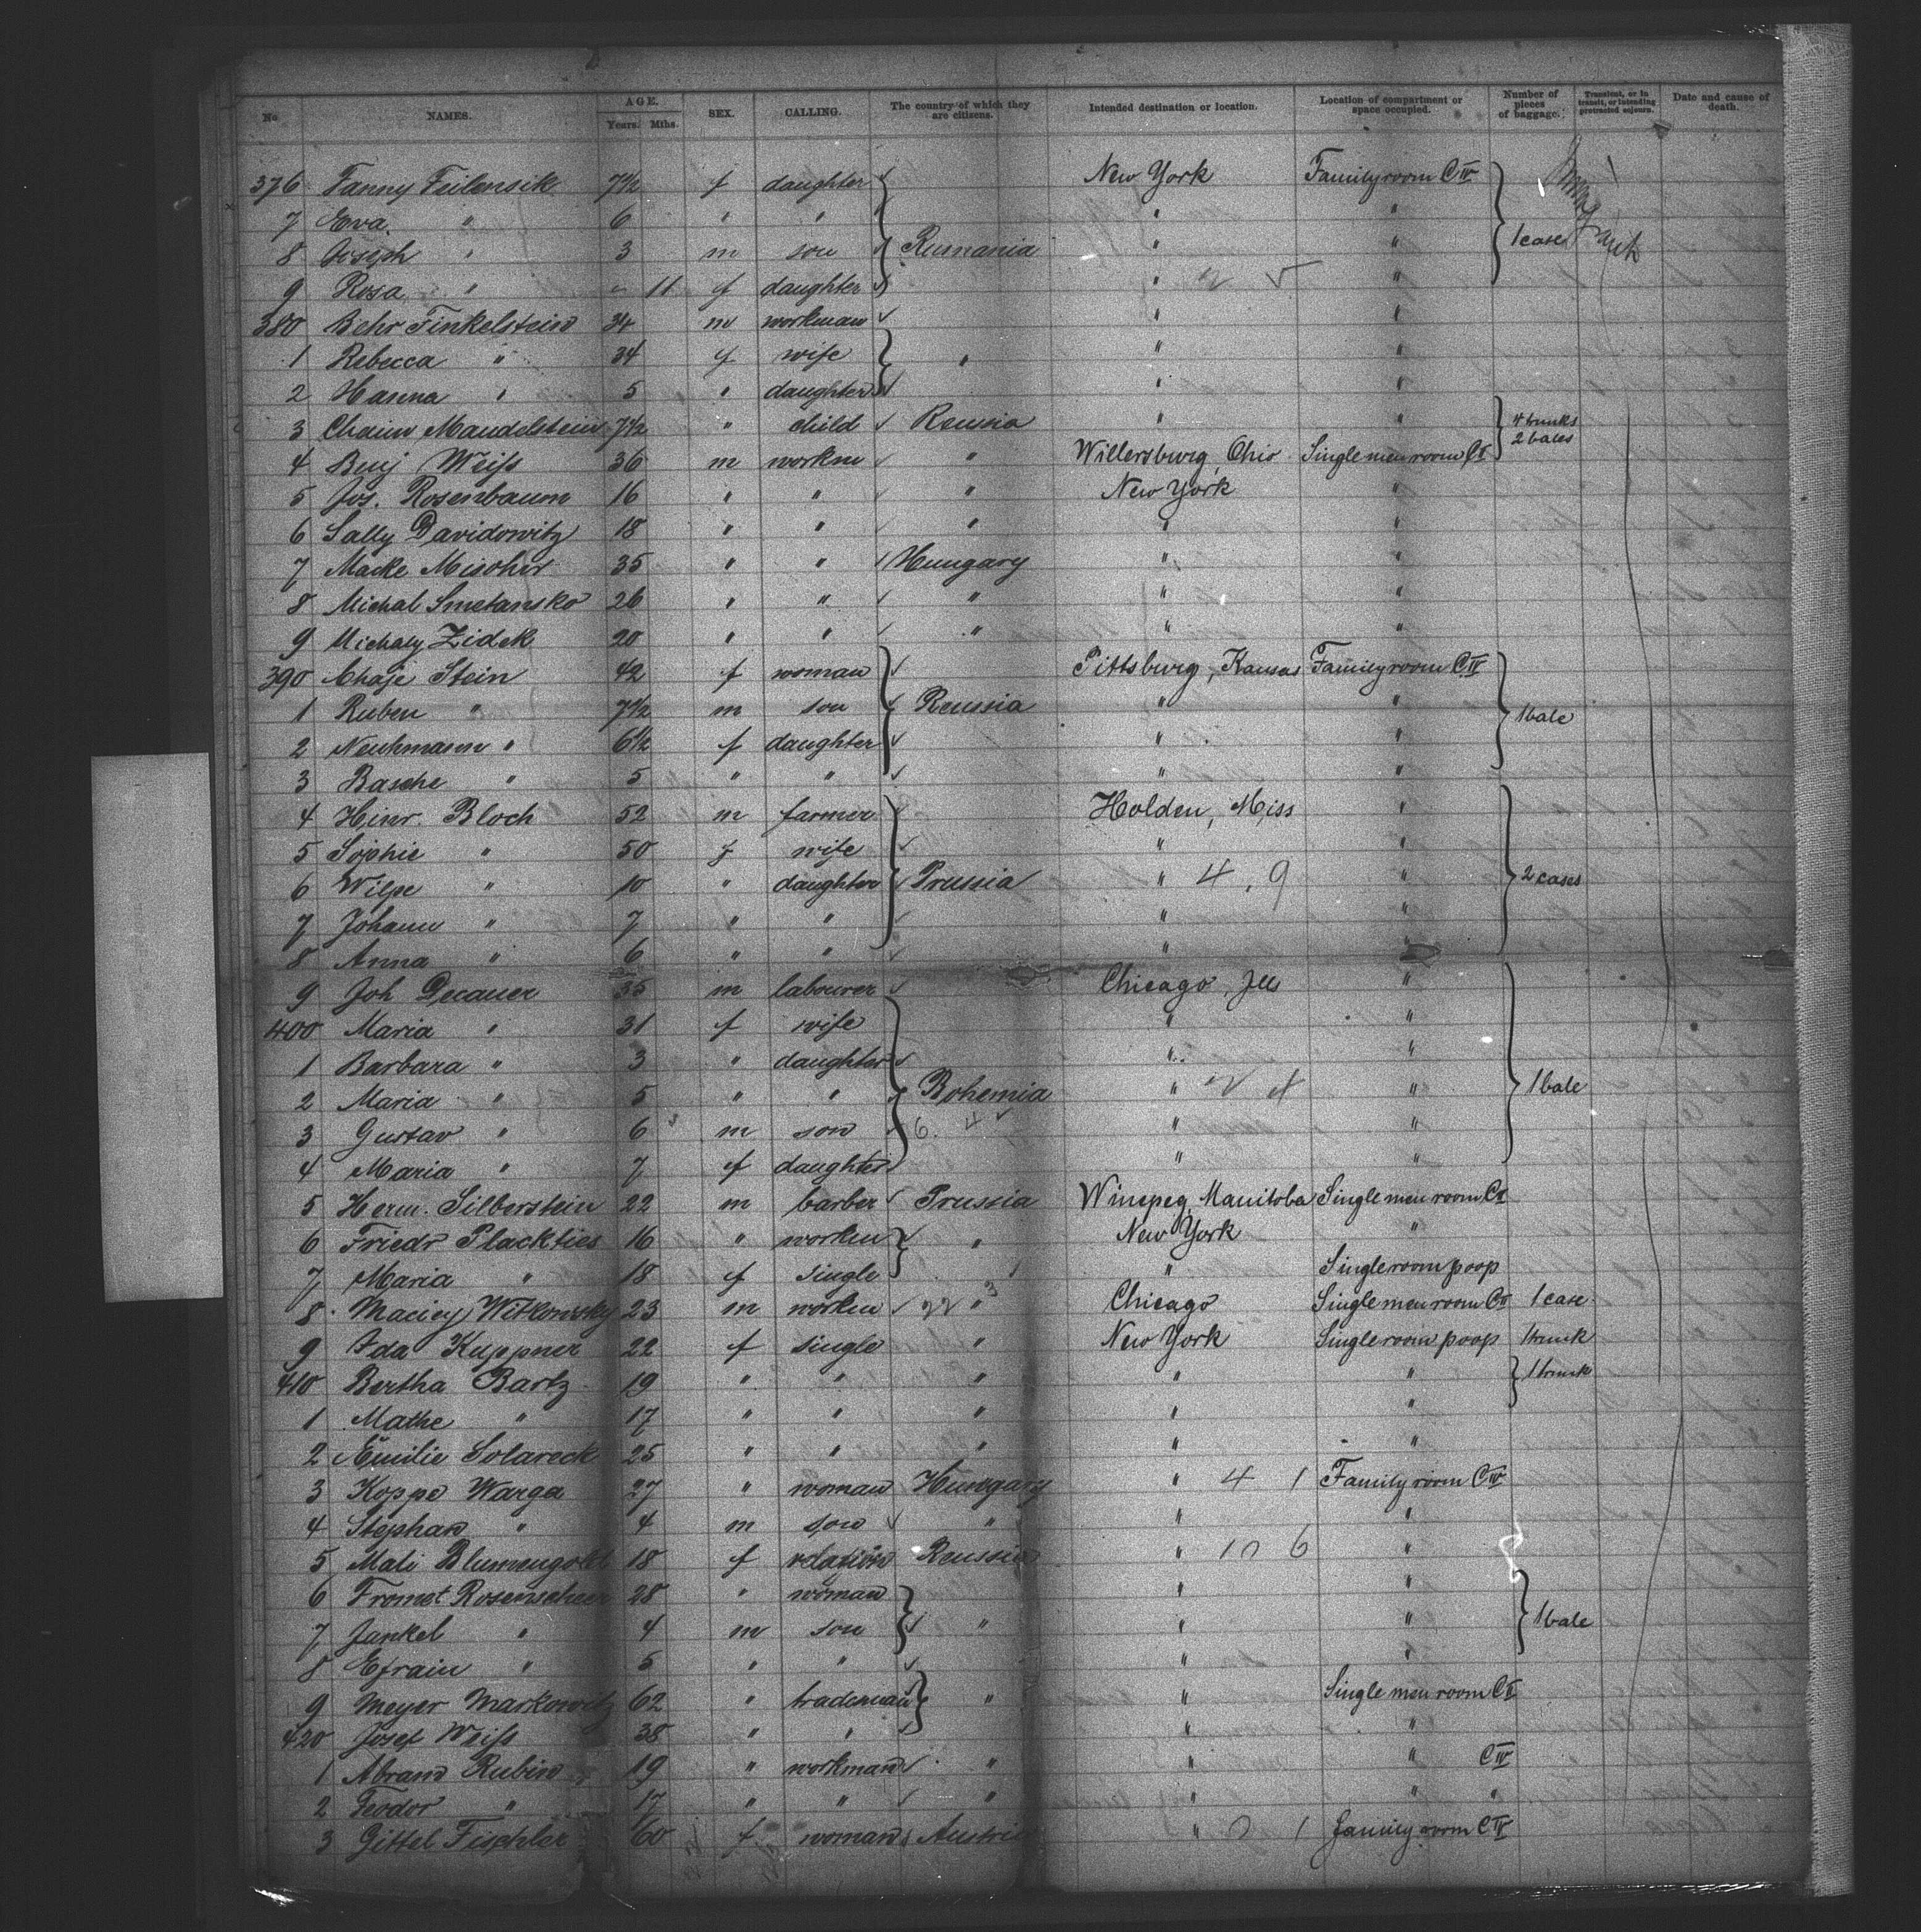 No NAMES. AGE. Years. Mths. SEX. CALLING. The country of which they are citizens. Intended destination or location. Location of compartment or space occupied. Number of pieces of baggage. Transient, or in transit, or intending protracted sojourn. Date and cause of death.
376 Fanny Feilensik 7 1/2 f daughter New York Family room C IV
7 Eva " 6 " " " "
8 Joseph " 3 m son Rumania " " 1 case
9 Rosa " - 11 f daughter " "
380 Behr Finkelstein 34 m workman " "
1 Rebecca " 34 f wife " " "
2 Hanna " 5 " daughter " "
3 Chaim Mandelstein 7 1/2 " child Reussia " " 4 trunks 2 bales
4 Benj Weiss 36 m workm " Willersburg, Ohio Single men room C II
5 Jos. Rosenbaum 16 " " " New York "
6 Sally Davidowitz 18 " " " " "
7 Macke Misohir 35 " " Hungary " "
8 Michal Smetansko 26 " " " " "
9 Michaly Zidek 20 " " " " "
390 Chaje Stein 42 f woman Pittsburg, Kansas Family room C IV
1 Ruben " 7 1/2 m son Reussia " " 1 bale
2 Neuhmann " 6 1/2 f daughter " "
3 Basche " 5 " " " "
4 Hinr. Bloch 52 m farmer Holden, Miss "
5 Sophie " 50 f wife " "
6 Wilpe " 10 " daughter Prussia " 4. 9 " 2 cases
7 Johann " 7 " " " "
8 Anna " 6 " " " "
9 Joh Decauer 35 m labourer Chicago, Ills "
400 Maria " 31 f wife " "
1 Barbara " 3 " daughter " "
2 Maria " 5 " " Bohemia " " 1 bale
3 Gustav " 6 m son 6. 4 " "
4 Maria " 7 f daughter " "
5 Herm. Silberstein 22 m barber Prussia Winepeg, Manitoba Single men room C II
6 Friedr Plackties 16 " workm " New York "
7 Maria " 18 f single " Single room poop
8 Maciey Witkowsky 23 m workm " Chicago Single men room C II 1 case
9 Ida Kuppner 22 f single " New York Single room poop 1 trunk
410 Bertha Bartz 19 " " " " " 1 trunk
1 Mathe " 17 " " " " "
2 Emilie Solareck 25 " " " " "
3 Koppe Warga 27 " woman Hungary " 4 1 Family room C IV
4 Stephan " 4 m son " " "
5 Mali Blumengold 18 f relation Reussia " 10 6 "
6 Fromet Rosenscheer 28 " woman " "
7 Jankel " 4 m son " " " 1 bale
8 Efraim " 5 " " " "
9 Meyer Markowitz 62 " trademan " " Single men room C II
420 Josef Weiss 38 " " " "
1 Abram Rubin 19 " workman " " " C IV
2 Feodor " 17 " " " " " "
3 Gittel Fischler 60 f woman Austria " 1 Family room C IV